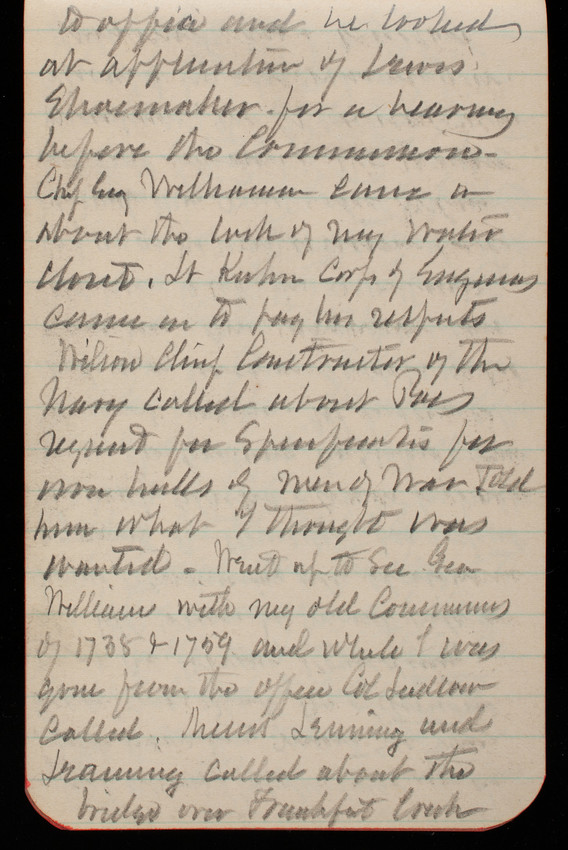 to office and he looked
at application of Lewis
Shoemaker for a hearing
before the Commission -
Chf Eng Williamson came in
about the lock of my water
closet. Lt Kuhn Corps of Engineers
came in to pay his respects
Wilson Chief Constructor of the
Navy called about
request for Specifications for
iron hulls of men of war Told
him what I thought was
wanted - Went up to see Gen
Williams with my old Commns
of 1738 & 1759 and while I was
gone from the office Col Ludlow
called. Messrs and
called about the
bridge over Frankfort Creek